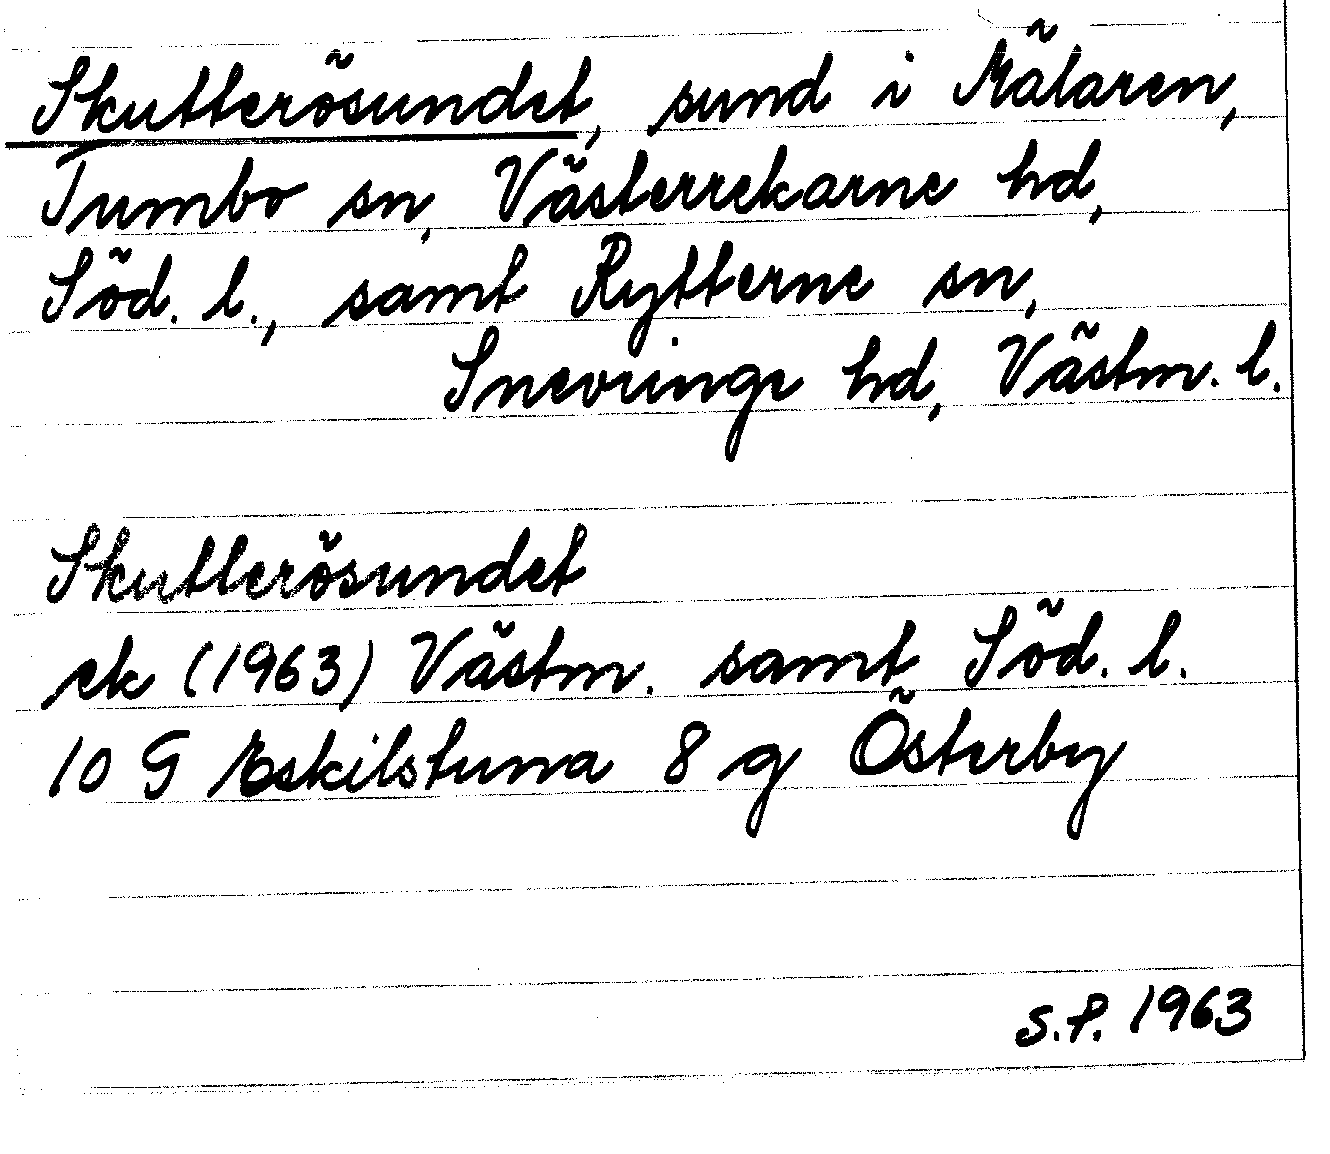 Skutterösundet, sund i Mälaren,
Tumbo sn, Västerrekarne hd,
Söd. l., samt Rytterne sn,
Snevringe hd, Västm. l.
Skutterösundet
ek (1963) Västm. samt Söd. l.
10 G Eskilstuna 8 g Österby
S.P. 1963